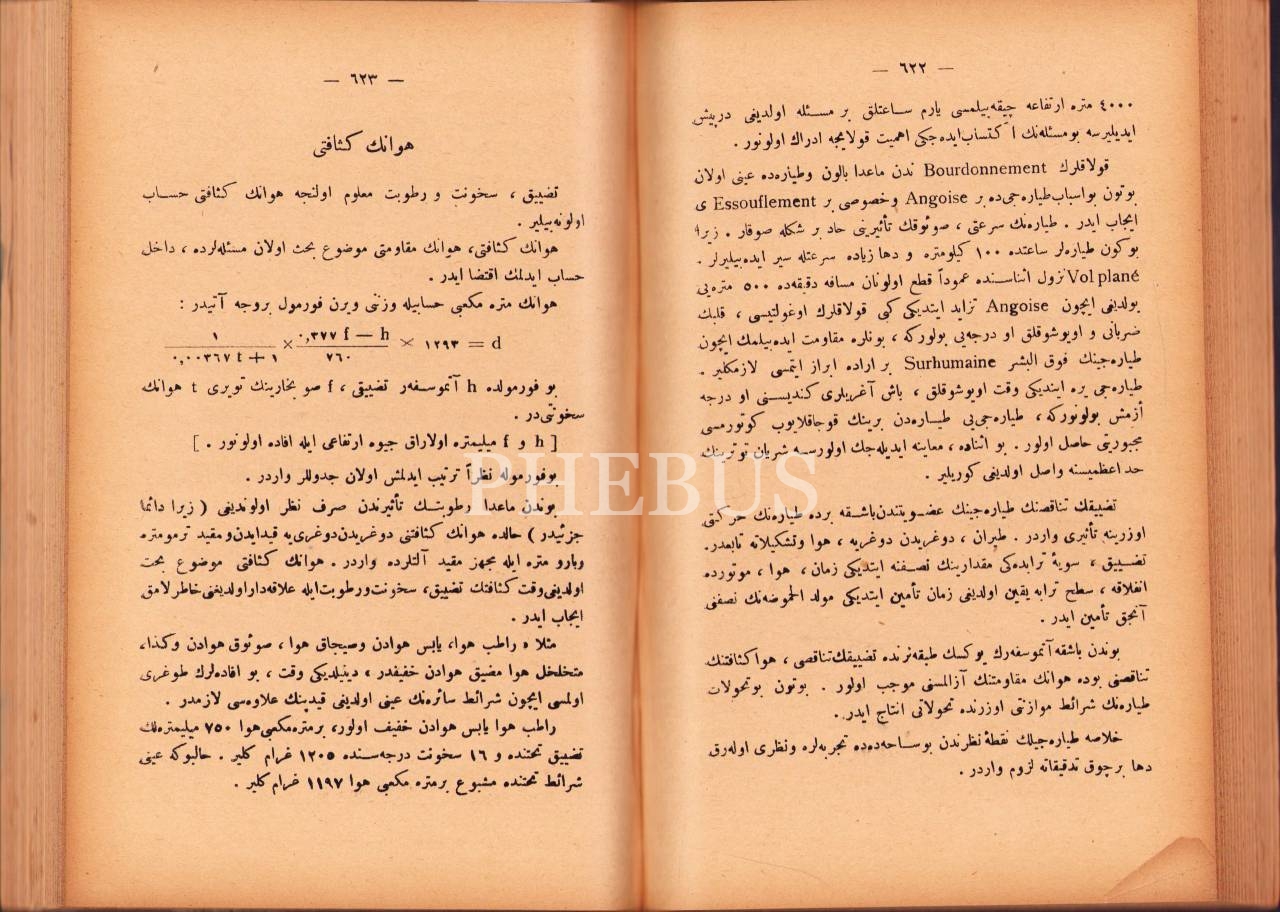 — ٦٢٢ —
٤٠٠٠ متره ارتفاعه چیقه‌بیلمسی یارم ساعتلق بر مسئله اولدیغی درپیش
ایدیلیرسه بو مسئله‌نك اكتساب ایده‌جكی اهمیت قولایجه ادراك اولونور .
قولاقلرك Bourdonnement ندن ماعدا بالون وطیاره‌ده عینی اولان
بوتون بواسباب طیاره‌جی‌ده بر Angoise وخصوصی بر Essouflement ی
ایجاب ایدر . طیاره‌نك سرعتی ، صوئوقك تأثیرینی حاد بر شكله صوقار . زیرا
بوكون طیاره‌لر ساعتده ١٠٠ كیلومتره و دها زیاده سرعتله سیر ایده‌بیلیرلر .
Vol plané نزول اثناسنده عموداً قطع اولونان مسافه دقیقه‌ده ٥٠٠ متره‌یی
بولدیغی ایچون Angoise تزاید ایتدیكی كبی قولاقلرك اوغولتیسی ، قلبك
ضربانی و اویوشوقلق او درجه‌یی بولوركه ، بونلره مقاومت ایده‌بیلمك ایچون
طیاره‌جینك فوق البشر Surhumaine بر اراده ابراز ایتمسی لازمكلیر .
طیاره‌جی یره ایندیكی وقت اویوشوقلق ، باش آغریلری كندیسنی او درجه
أزمش بولونوركه ، طیاره‌جی‌یی طیاره‌دن برینك قوجاقلایوب كوتورمسی
مجبوریتی حاصل اولور . بو اثناده ، معاینه ایدیله‌جك اولورسه شریان توترینك
حد اعظمیسنه واصل اولدیغی كوریلیر .
تضییقك تناقصنك طیاره‌جینك عضویتندن باشقه برده طیاره‌نك حركتی
اوزرینه تأثیری واردر . طیران ، دوغریدن دوغریه ، هوا وتشكیلاته تابعدر.
تضییق ، سویهٔ ترابده‌كی مقدارینك نصفنه ایندیكی زمان ، هوا ، موتورده
انفلاقه ، سطح ترابه یقین اولدیغی زمان تأمین ایتدیكی مولد الحموضه‌نك نصفنی
آنجق تأمین ایدر .
بوندن باشقه آتموسفه‌رك یوكسك طبقه‌لرنده تضییقك تناقصی ، هوا كثافتنك
تناقصنی بوده هوانك مقاومتنك آزالمسنی موجب اولور . بوتون بو تحولات
طیاره‌نك شرائط موازنتی اوزرنده تحولاتی انتاج ایدر .
خلاصه طیاره‌جیلك نقطهٔ نظرندن بو ساحه‌ده‌ده تجربه‌لره ونظری اوله‌رق
دها برچوق تدقیقاته لزوم واردر .
— ٦٢٣ —
هوانك كثافتی
تضییق ، سخونت و رطوبت معلوم اولنجه هوانك كثافتی حساب
اولونه‌بیلیر .
هوانك كثافتی، هوانك مقاومتی موضوع بحث اولان مسئله‌لرده ، داخل
حساب ایدلمك اقتضا ایدر .
هوانك متره مكعبی حسابیله وزننی ویرن فورمول بروجه آتیدر :
d = ١٢٩٣ × ٠,٣٧٧ f — h / ٧٦٠ × ١ / ٠,٠٠٣٦٧ t + ١
بو فورمولده h آتموسفه‌ر تضییقی ، f صو بخارینك توتری t هوانك
سخونتی‌در .
[ h و f میلیمتره اولاراق جیوه ارتفاعی ایله افاده اولونور . ]
بوفورموله نظراً ترتیب ایدلمش اولان جدوللر واردر .
بوندن ماعدا رطوبتك تأثیرندن صرف نظر اولوندیغی ( زیرا دائما
جزئیدر ) حالده هوانك كثافتنی دوغریدن دوغری‌یه قید ایدن و مقید ترمومتره
وبارو متره ایله مجهز مقید آلتلرده واردر . هوانك كثافتی موضوع بحث
اولدیغی وقت كثافتك تضییق، سخونت ورطوبت ایله علاقه‌دار اولدیغنی خاطرلامق
ایجاب ایدر .
مثلا « راطب هوا، یابس هوادن وصیجاق هوا ، صوئوق هوادن وكذا،
متخلخل هوا مضیق هوادن خفیفدر ، دینیلدیكی وقت ، بو افاده‌لرك طوغری
اولمسی ایچون شرائط سائره‌نك عینی اولدیغی قیدینك علاوه‌سی لازمدر .
راطب هوا یابس هوادن خفیف اولور، برمتره مكعبی هوا ٧٥٠ میلیمتره‌لك
تضییق تحتنده و ١٦ سخونت درجه‌سنده ١٢٠٥ غرام كلیر . حالبوكه عینی
شرائط تحتنده مشبوع برمتره مكعبی هوا ١١٩٧ غرام كلیر .
PHEBUS